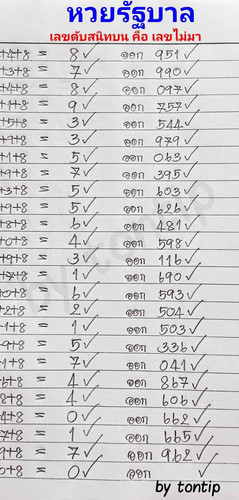 หวยรัฐบาล
เลขดับสนิทบน คือ เลขไม่มา
+4+8 = 8✓ ออก 951✓
+3+8 = 7✓ ออก 990✓
+4+8 = 8✓ ออก 097✓
+8 = 9✓ ออก 757✓
+5+8 = 3✓ ออก 544✓
+9+8 = 3✓ ออก 979✓
+1+8 = 5✓ ออก 063✓
+9+8 = 7✓ ออก 395✓
+3+8 = 5✓ ออก 603✓
+9+8 = 5✓ ออก 626✓
+8+8 = 6✓ ออก 481✓
+0+8 = 4✓ ออก 598✓
+9+8 = 3✓ ออก 116✓
+7+8 = 1✓ ออก 690✓
0+8 = 6✓ ออก 593✓
+2+8 = 2✓ ออก 504✓
-1+8 = 1✓ ออก 503✓
-9+8 = 5✓ ออก 336✓
1+8 = 7✓ ออก 041✓
+8 = 4✓ ออก 867✓
+8+8 = 4✓ ออก 606✓
4+8 = 0✓ ออก 662✓
7+8 = 1✓ ออก 665✓
9+8 = 7✓ ออก 962✓
0+8 = 0✓ ออก ✓
by tontip
by tontip